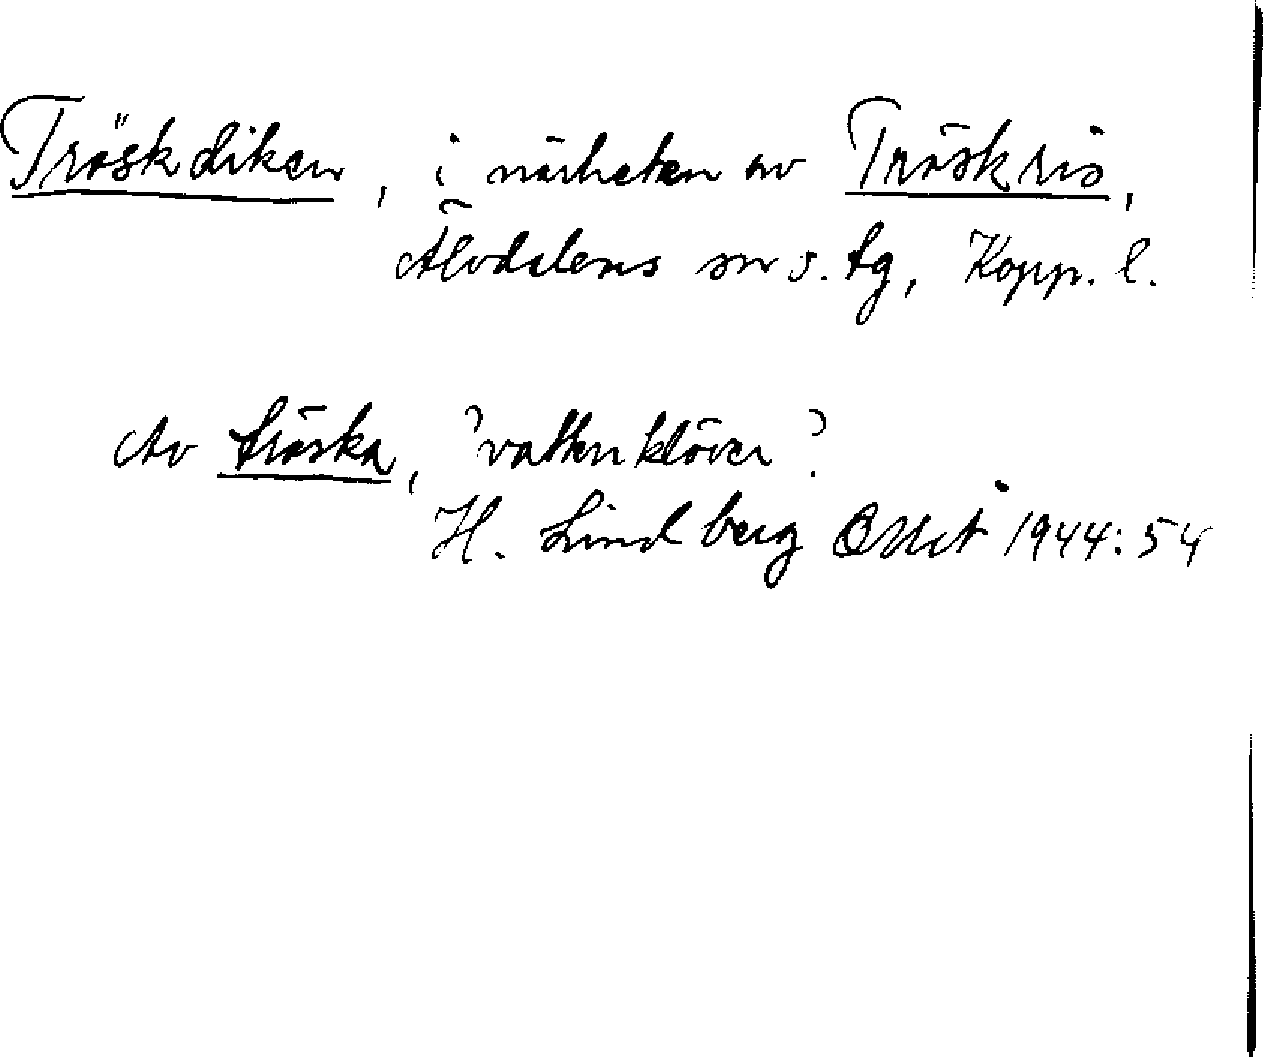 Tröskdiken, i närheten av Tröskris,
Älvdalens sn s. tg, Kopp. l.
Av tröska, 'vattenklöver'.
H. Lindberg 1944: 54